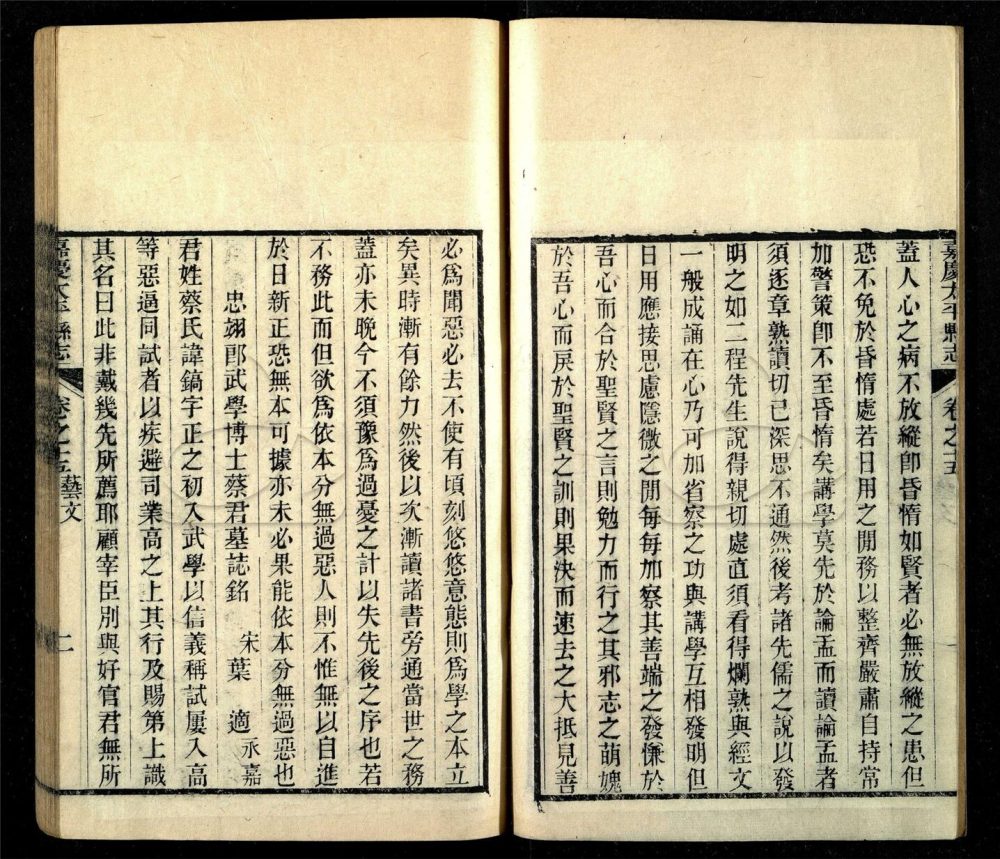 嘉慶太平縣志 卷之十五
蓋人心之病不放縱卽昏惰如賢者必無放縱之患但
恐不免於昏惰處若日用之閒務以整齊嚴肅自持常
加警策卽不至昏惰矣講學莫先於論孟而讀論孟者
須逐章熟讀切己深思不通然後考諸先儒之說以發
明之如二程先生說得親切處直須看得爛熟與經文
一般成誦在心乃可加省察之功與講學互相發明但
日用應接思慮隱微之閒每每加察其善端之發慊於
吾心而合於聖賢之言則勉力而行之其邪志之萌愧
於吾心而戾於聖賢之訓則果決而速去之大抵見善
必爲聞惡必去不使有頃刻悠悠意態則爲學之本立
矣異時漸有餘力然後以次漸讀諸書旁通當世之務
蓋亦未晚今不須豫爲過憂之計以失先後之序也若
不務此而但欲爲依本分無過惡人則不惟無以自進
於日新正恐無本可據亦未必果能依本分無過惡也
忠翊郎武學博士蔡君墓誌銘 宋葉適永嘉
君姓蔡氏諱鎬字正之初入武學以信義稱試屢入高
等惡逼同試者以疾避司業高之上其行及賜第上識
其名曰此非戴幾先所薦耶顧宰臣別與好官君無所
嘉慶太平縣志 卷之十五藝文 二